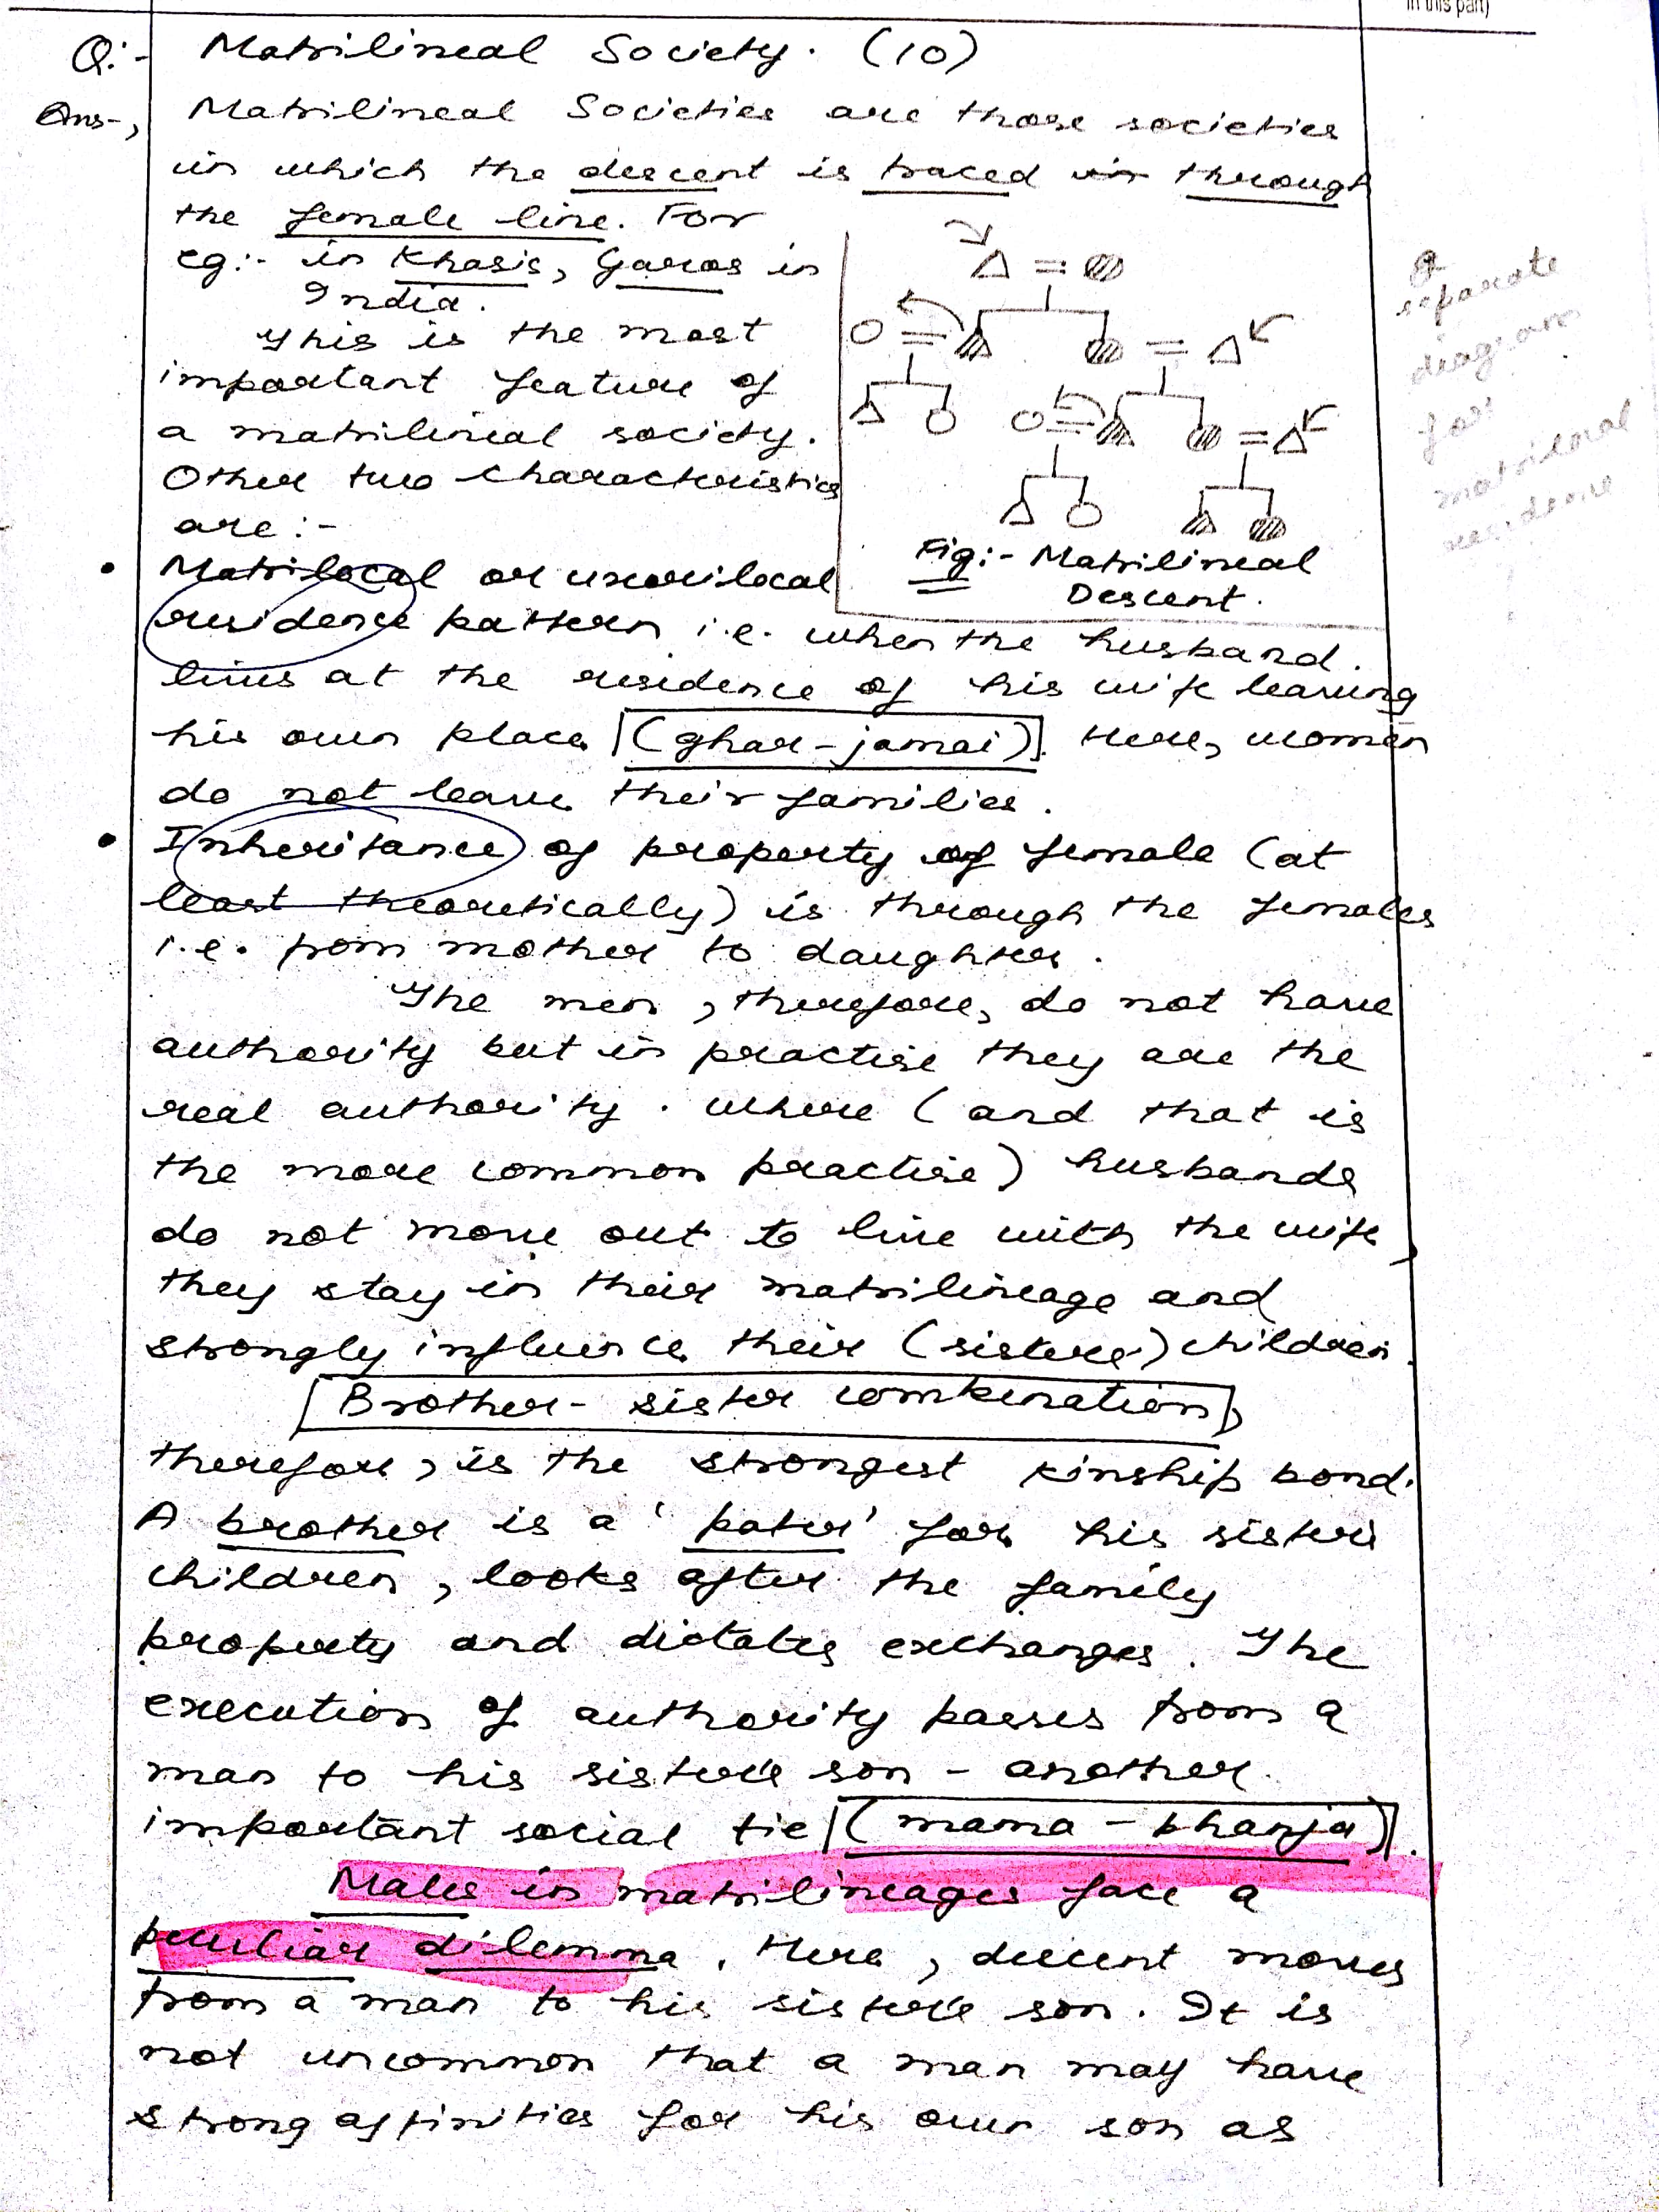 in this part)
Q:- Matrilineal Society. (10)
Ans-, Matrilineal Societies are those societies
in which the descent is traced in through
the female line. For
eg:- in Khasis, Garos in
India.
This is the most
important feature of
a matrilineal society.
Other two characteristics
are :-
Fig:- Matrilineal
Descent.
A
separate
diagram
for
matrilocal
residence
• Matrilocal or uxorilocal
residence pattern i.e. when the husband
lives at the residence of his wife leaving
his own place [(ghar-jamai)]. Here, women
do not leave their families.
• Inheritance of property of female (at
least theoretically) is through the females
i.e. from mother to daughter.
The men, therefore, do not have
authority but in practise they are the
real authority. Where (and that is
the more common practise) husbands
do not move out to live with the wife,
they stay in their matrilineage and
strongly influence their (sisters) children.
[Brother-sister combination],
therefore, is the strongest kinship bond.
A brother is a 'pater' for his sisters
children, looks after the family
property and dictates exchanges. The
execution of authority passes from a
man to his sister's son - another
important social tie [(mama-bhanja)].
Males in matrilineages face a
peculiar dilemma. Here, descent moves
from a man to his sister's son. It is
not uncommon that a man may have
strong affinities for his own son as